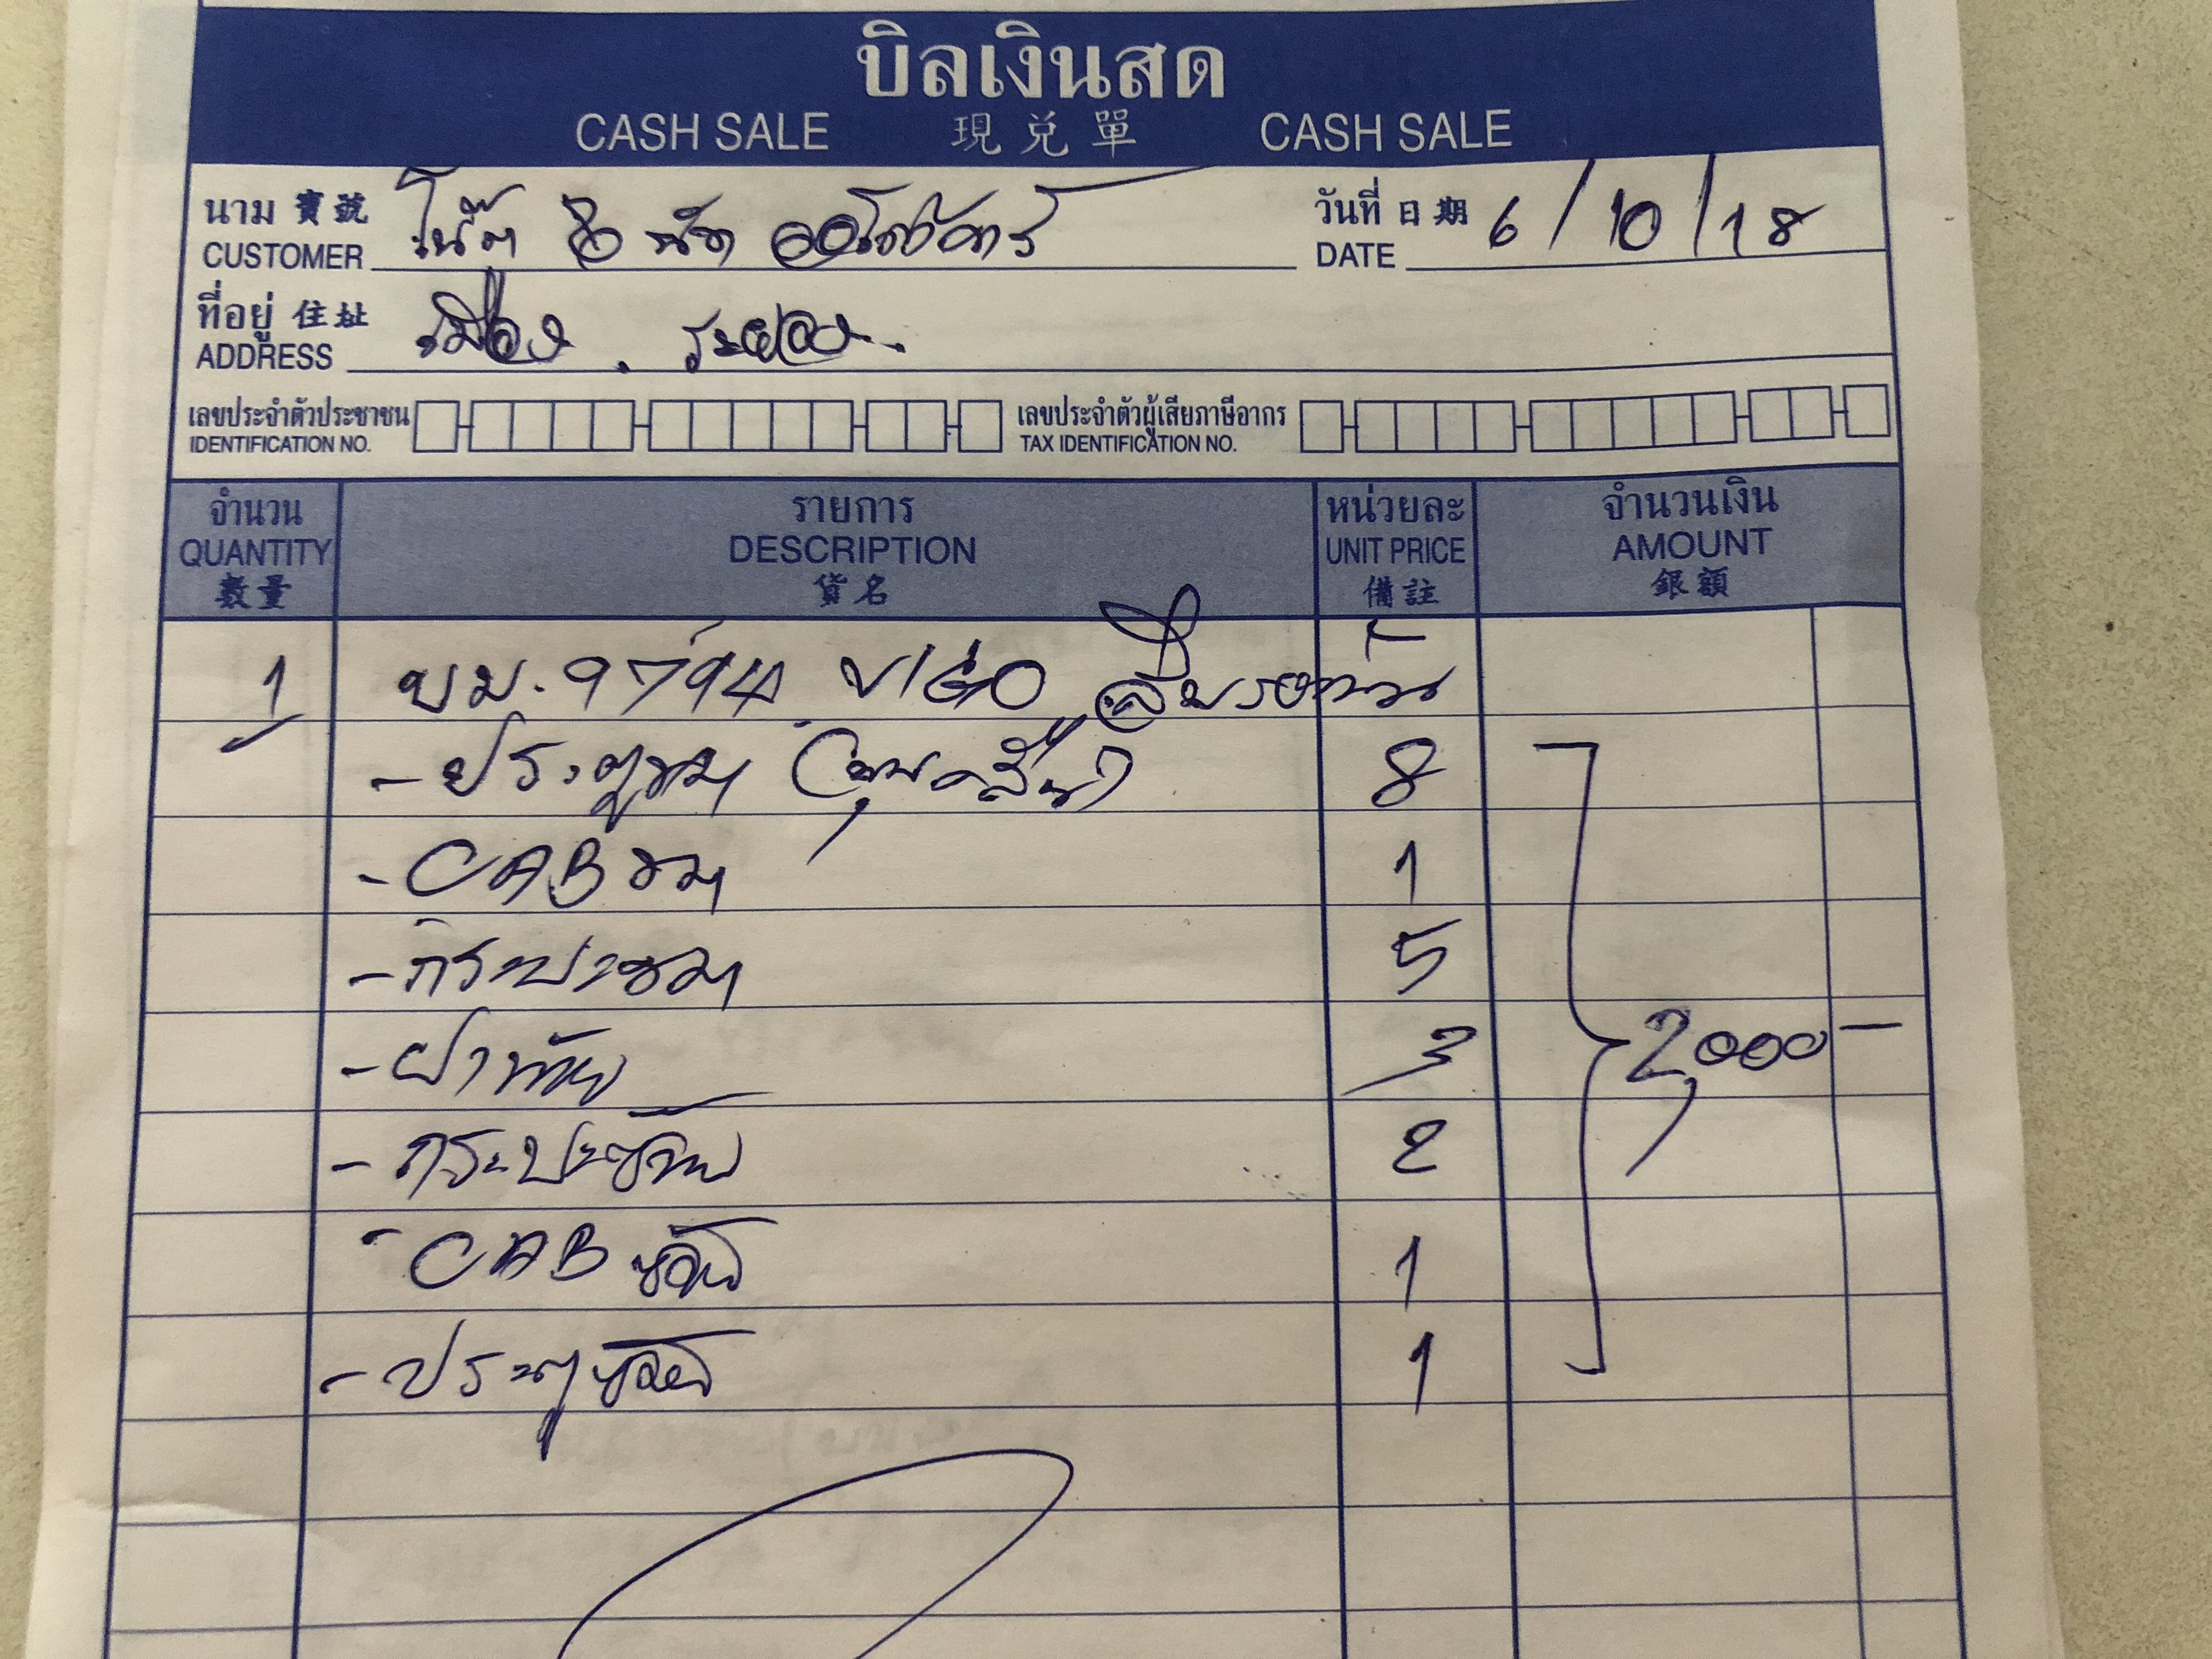 บิลเงินสด
CASH SALE 現兌單 CASH SALE
นาม 寶號 โน๊ต & นัท ออโต้คาร์ วันที่ 日期 6/10/18
CUSTOMER DATE
ที่อยู่ 住址 เมือง . ระยอง.
ADDRESS
เลขประจำตัวประชาชน เลขประจำตัวผู้เสียภาษีอากร
IDENTIFICATION NO. TAX IDENTIFICATION NO.
จำนวน รายการ หน่วยละ จำนวนเงิน
QUANTITY DESCRIPTION UNIT PRICE AMOUNT
數量 貨名 備註 銀額
1 ยม. 9794 VIGO
- ประตูขวา 8
- CAB ขวา 1
- กระบะขวา 5
- ฝาท้าย 3 2,000 -
- กระบะซ้าย 2
- CAB ซ้าย 1
- ประตูซ้าย 1